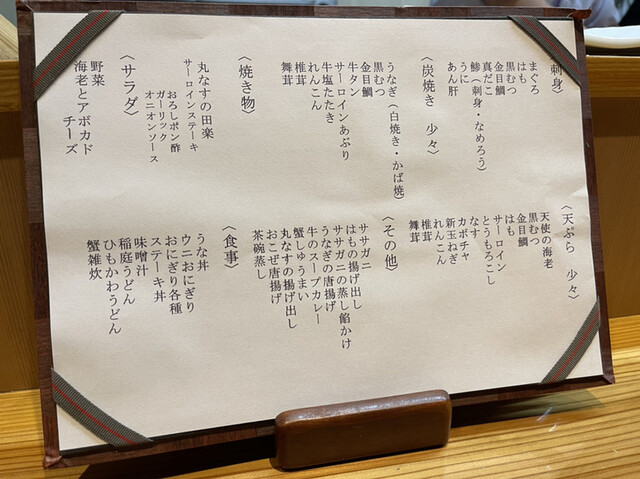 〈刺身〉
まぐろ
はも
黒むつ
金目鯛
真だこ
鯵（刺身・なめろう）
うに
あん肝
〈炭焼き　少々〉
うなぎ（白焼き・かば焼）
黒むつ
金目鯛
牛タン
サーロインあぶり
牛塩たたき
れんこん
椎茸
舞茸
〈焼き物〉
丸なすの田楽
サーロインステーキ
おろしポン酢
ガーリック
オニオンソース
〈サラダ〉
野菜
海老とアボカド
チーズ
〈天ぷら　少々〉
天使の海老
黒むつ
金目鯛
はも
サーロイン
とうもろこし
なす
カボチャ
新玉ねぎ
れんこん
椎茸
舞茸
〈その他〉
ササガニ
はもの揚げ出し
ササガニの蒸し餡かけ
うなぎの唐揚げ
牛のスープカレー
蟹しゅうまい
丸なすの揚げ出し
おこぜ唐揚げ
茶碗蒸し
〈食事〉
うな丼
ウニおにぎり
おにぎり各種
ステーキ丼
味噌汁
稲庭うどん
ひもかわうどん
蟹雑炊